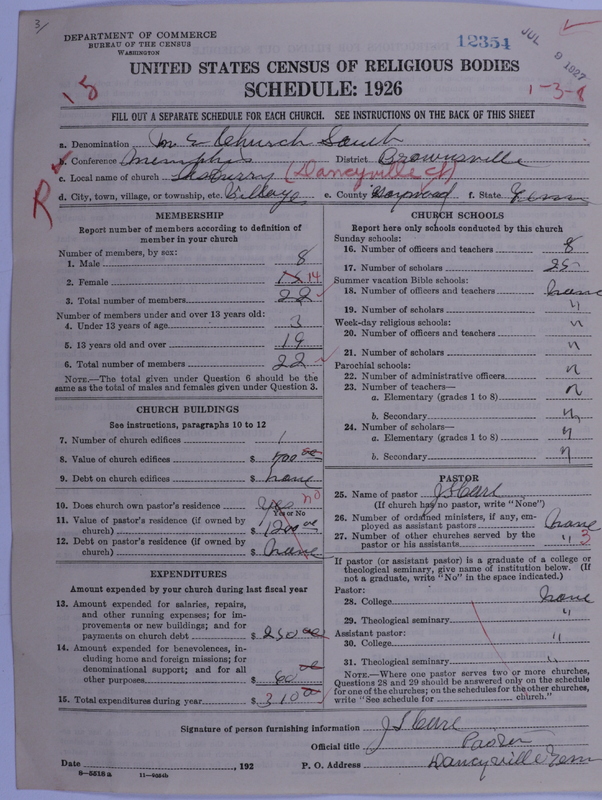 3/
DEPARTMENT OF COMMERCE
BUREAU OF THE CENSUS
WASHINGTON
12354
JUL 9 1927
UNITED STATES CENSUS OF RELIGIOUS BODIES
SCHEDULE: 1926
15
1-3-8
FILL OUT A SEPARATE SCHEDULE FOR EACH CHURCH. SEE INSTRUCTIONS ON THE BACK OF THIS SHEET
a. Denomination M E Church South
b. Conference Memphis District Brownsville
c. Local name of church Asburry (Dancyville Ct)
d. City, town, village, or township, etc. Village e. County Haywood f. State Tenn
R
MEMBERSHIP
Report number of members according to definition of
member in your church
Number of members, by sex:
1. Male 8
2. Female 15 14
3. Total number of members 22
Number of members under and over 13 years old:
4. Under 13 years of age 3
5. 13 years old and over 19
6. Total number of members 22
NOTE.—The total given under Question 6 should be
same as the total of males and females given under Question 3.
CHURCH BUILDINGS
See instructions, paragraphs 10 to 12
7. Number of church edifices 1
8. Value of church edifices $ 700 00
9. Debt on church edifices $ none
10. Does church own pastor's residence Yes no
Yes or No
11. Value of pastor's residence (if owned by
church) $ 1200 00
12. Debt on pastor's residence (if owned by
church) $ none
EXPENDITURES
Amount expended by your church during last fiscal year
13. Amount expended for salaries, repairs,
and other running expenses; for im-
provements or new buildings; and for
payments on church debt $ 250 00
14. Amount expended for benevolences, in-
cluding home and foreign missions; for
denominational support; and for all
other purposes $ 60 00
15. Total expenditures during year $ 310 00
CHURCH SCHOOLS
Report here only schools conducted by this church
Sunday schools:
16. Number of officers and teachers 8
17. Number of scholars 25
Summer vacation Bible schools:
18. Number of officers and teachers none
19. Number of scholars "
Week-day religious schools:
20. Number of officers and teachers n
21. Number of scholars n
Parochial schools:
22. Number of administrative officers n
23. Number of teachers—
a. Elementary (grades 1 to 8) n
b. Secondary n
24. Number of scholars—
a. Elementary (grades 1 to 8) n
b. Secondary n
PASTOR
25. Name of pastor
(If church has no pastor, write "None")
26. Number of ordained ministers, if any, em-
ployed as assistant pastors none
27. Number of other churches served by the
pastor or his assistants " 3
If pastor (or assistant pastor) is a graduate of a college or
theological seminary, give name of institution below. (If
not a graduate, write "No" in the space indicated.)
Pastor:
28. College none
29. Theological seminary "
Assistant pastor:
30. College "
31. Theological seminary "
NOTE.—Where one pastor serves two or more churches,
Questions 28 and 29 should be answered only on the schedule
for one of the churches; on the schedules for the other churches,
write "See schedule for church."
Signature of person furnishing information
Official title Pastor
Date , 192 P. O. Address Dancyville Tenn
8—5518 a 11—9264b